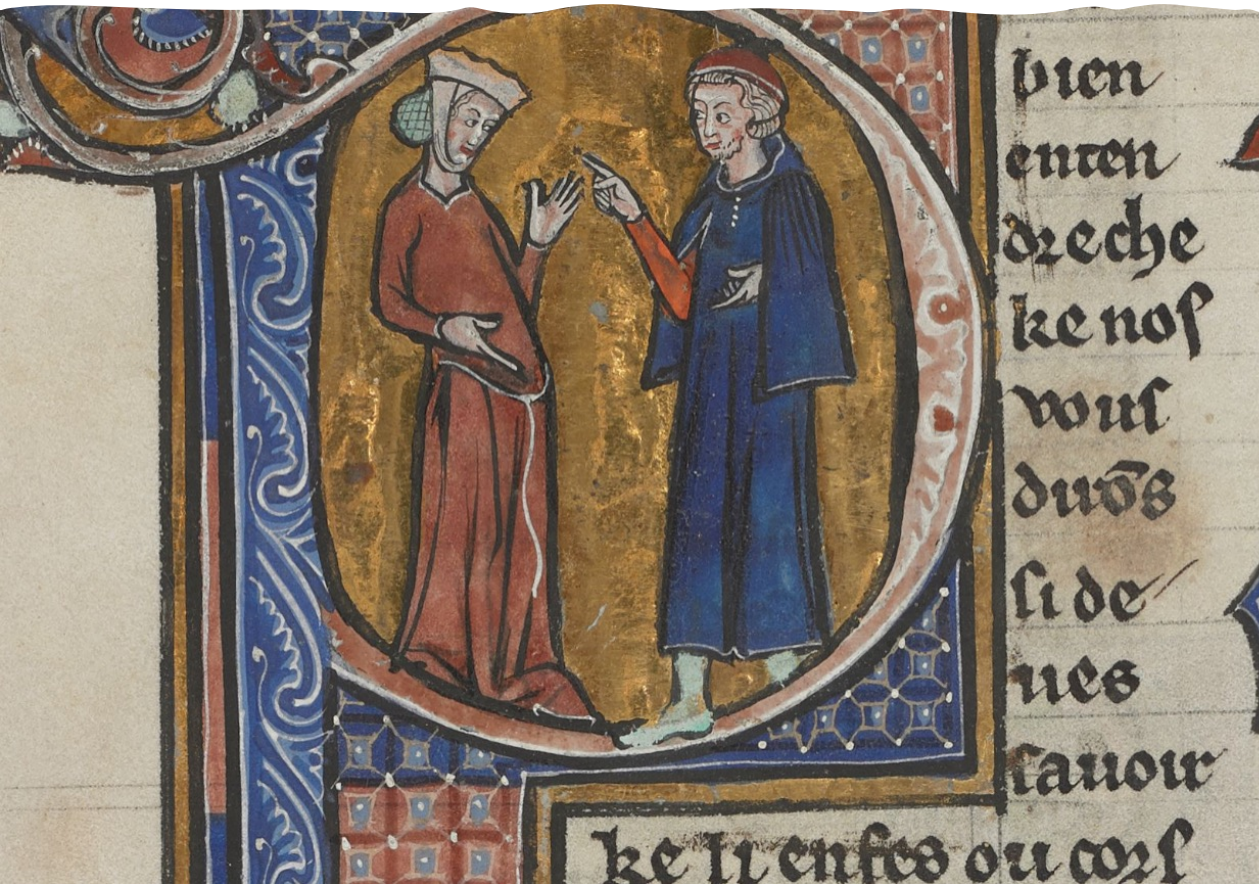 bien
enten
dreche
ke noſ
vouſ
duvōs
ſi de
ues
ſauoir
ke li enfes ou corſ